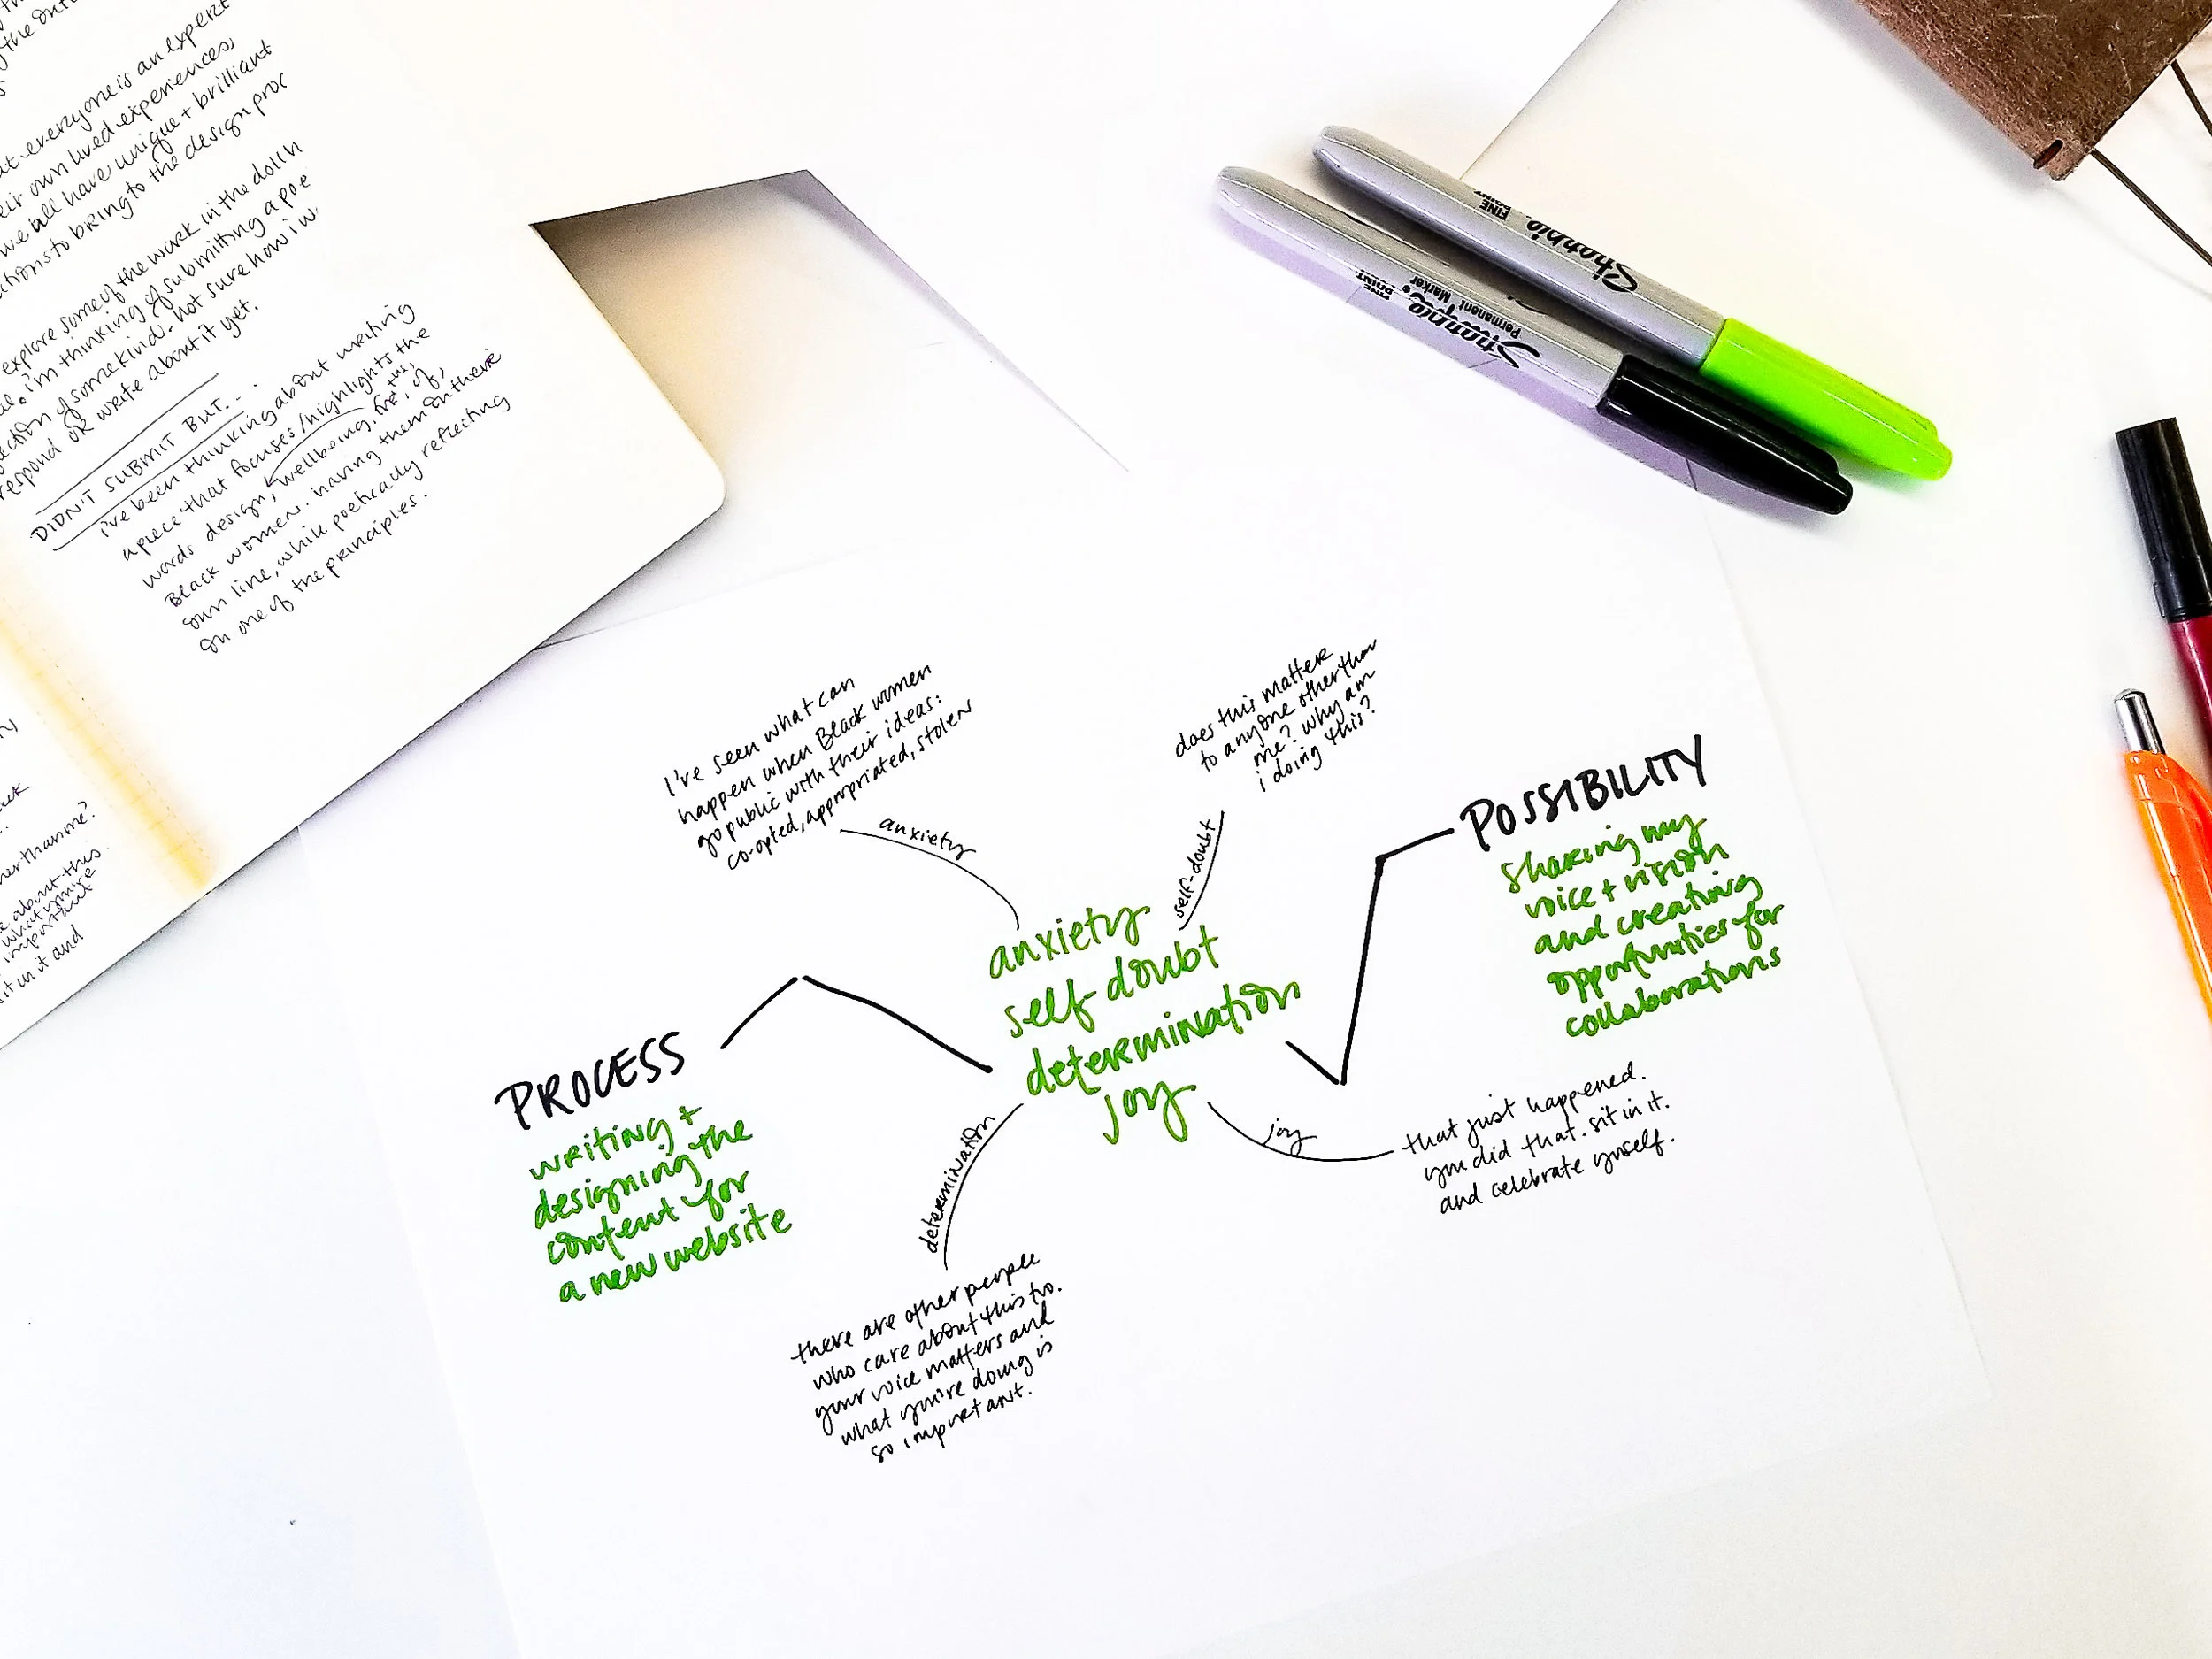 the
at everyone is an expert
eir own lived experiences,
we all have unique + brilliant
ctions to bring to the design proc
explore some of the work in the
i'm thinking of submitting a
ection of some kind. not sure how i
respond or write about it yet.
DIDN'T SUBMIT BUT...
i've been thinking about writing
a piece that focuses/highlights the
words design, wellbeing, for, the, of,
Black women. having them on there
own line, while poetically reflecting
on one of the principles.
her than me?
e about this
what you're
important
sit in it and
Sharpie
FINE
POINT
Sharpie
FINE
POINT
Permanent Marker
I've seen what can
happen when Black women
go public with their ideas:
co-opted, appropriated, stolen
anxiety
does this matter
to anyone other than
me? why am
i doing this?
self-doubt
anxiety
self-doubt
determination
joy
PROCESS
writing +
designing the
content for
a new website
POSSIBILITY
sharing my
voice + vision
and creating
opportunities for
collaborations
determination
there are other people
who care about this too.
your voice matters and
what you're doing is
so important.
joy
that just happened.
you did that. sit in it.
and celebrate yourself.